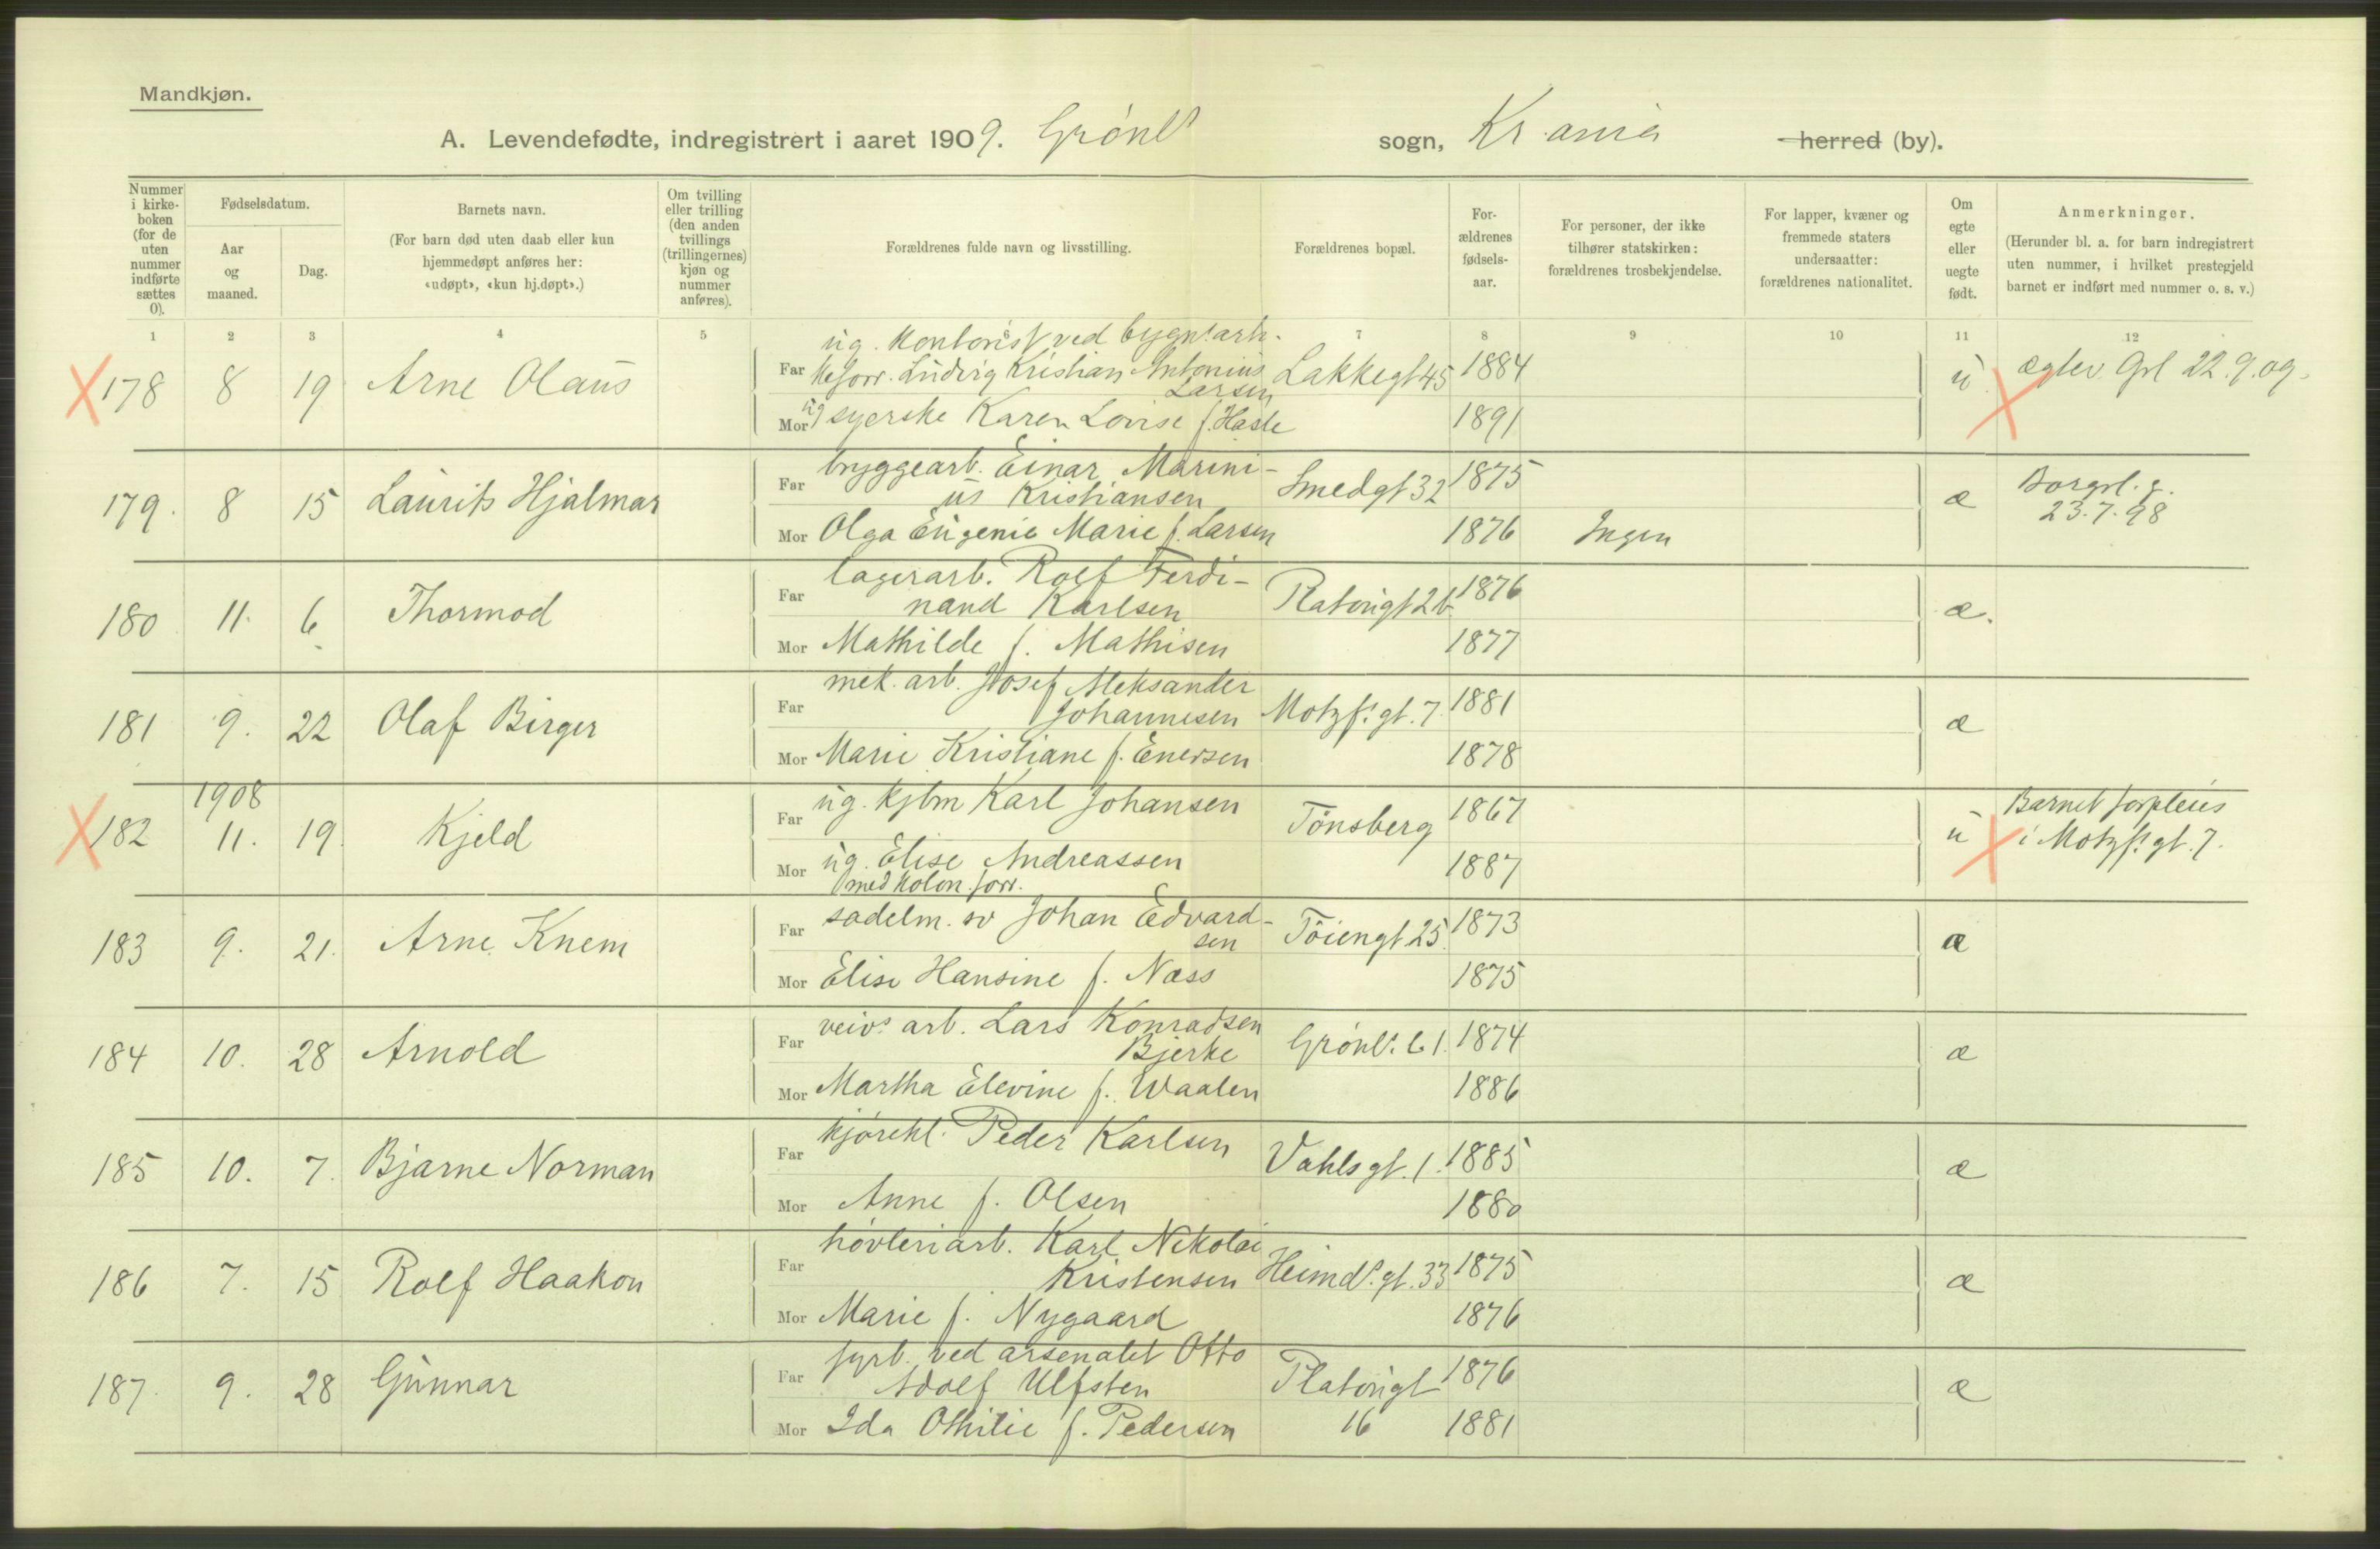 Mandkjøn.
A. Levendefødte, indregistrert i aaret 1909. Grønl^s sogn, Kr.ania herred (by).
Nummer i kirke-boken (for de uten nummer indførte sættes 0).
Fødselsdatum.
Aar og maaned.
Dag.
Barnets navn.
(For barn død uten daab eller kun hjemmedøpt anføres her: «udøpt», «kun hj.døpt».)
Om tvilling eller trilling (den anden tvillings (trillingernes) kjøn og nummer anføres).
Forældrenes fulde navn og livsstilling.
Forældrenes bopæl.
For-ældrenes fødsels-aar.
For personer, der ikke tilhører statskirken: forældrenes trosbekjendelse.
For lapper, kvæner og fremmede staters undersaatter: forældrenes nationalitet.
Om egte eller uegte født.
Anmerkninger.
(Herunder bl. a. for barn indregistrert uten nummer, i hvilket prestegjeld barnet er indført med nummer o. s. v.)
1 2 3 4 5 6 7 8 9 10 11 12
ug. kontorist ved
178 8 19 Arne Olaus Far Ludvig Kristian Antonius Lakkegt 45 1884 u. Grl 22.9.09.
Larsen
Mor ug syerske Karen Lovise f. Hasle 1891
bryggearb. Einar Marini-
179. 8 15 Laurits Hjalmar Far us Kristiansen Smedgt 32 1875 æ
23.7.98
Mor Olga Eugenie Marie f. Larsen 1876 Ingen
lagerarb. Rolf Ferdi-
180 11. 6 Thormod Far nand Karlsen Platougt 2b 1876 æ.
Mor Mathilde f. Mathisen 1877
mek. arb. Josef Aleksander
181 9. 22 Olaf Birger Far Johannesen Motzf^s gt. 7. 1881 æ
Mor Marie Kristiane f. Enersen 1878
1908
182 11. 19. Kjeld Far ug. kjbm Karl Johansen Tønsberg 1867 u Barnet forpleies
i Motzf^s gt. 7.
Mor ug. Elise Andreassen 1887
med kolon. forr.
183 9. 21. Arne Knem Far sadelm. sv Johan Edvard- Tøiengt 25. 1873 æ
sen
Mor Elise Hansine f. Næss 1875
veiv^s arb. Lars Konradsen
184 10. 28 Arnold Far Bjerke Grønl^s 61. 1874 æ
Mor Martha Elevine f. Waalen 1886
185 10. 7. Bjarne Norman Far kjørekl. Peder Karlsen Vahlsgt. 1. 1885 æ
Mor Anne f. Olsen 1880
høvleriarb. Karl Nikolai
186 7. 15 Rolf Haakon Far Kristensen Heimd^s gt. 33 1875 æ
Mor Marie f. Nygaard 1876
fyrb. ved arsenalet Otto
187. 9. 28 Gunnar Far Adolf Ulfsten Platougt 1876 æ
16
Mor Ida Othilie f. Pedersen 1881